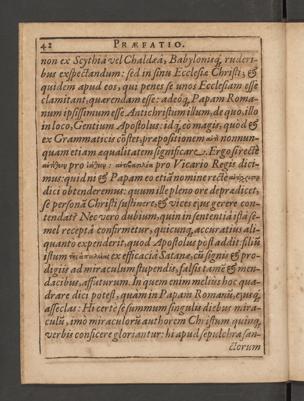 42 PRÆFATIO.
non ex Scythiâ vel Chaldæâ, Babylonisq́; ruderi-
bus exspectandum: sed in sinu Ecclesiæ Christi; &
quidem apud eos, qui penes se unos Ecclesiam esse
clamitant, quærendam esse: adeoq́; Papam Roma-
num ipsissimum esse Antichristum illum, de quo, illo
in loco, Gentium Apostolus: idq́; eò magis, quod &
ex Grammaticis côstet, præpositionem ἀντὶ nonnun-
quam etiam æqualitatem significare. Ergo si rectè
pro Vicario Regis dici-
mus: quidni & Papam eo etiâ nomine rectè
dici obtenderemus: quum ille pleno ore deprædicet,
se personâ Christi sustinere, & vices ejus gerere con-
tendat? Nec vero dubium, quin in sententiâ istâ se-
mel receptâ confirmetur, quicunq́; accuratius ali-
quanto expenderit, quod Apostolus post addit: filiû
istum τῆς ἀπωλείας ex efficaciâ Satanæ, cû signis & pro-
digiis ad miraculum stupendis, falsis tamê & men-
dacibus, affuturum. In quem enim melius hoc qua-
drare dici potest, quàm in Papam Romanû, ejusq́;
asseclas: Hi certè se summum singulis diebus mira-
culû, imò miraculorû authorem Christum quinq́;
verbis conficere gloriantur: hi apud sepulchra san-
ctorum